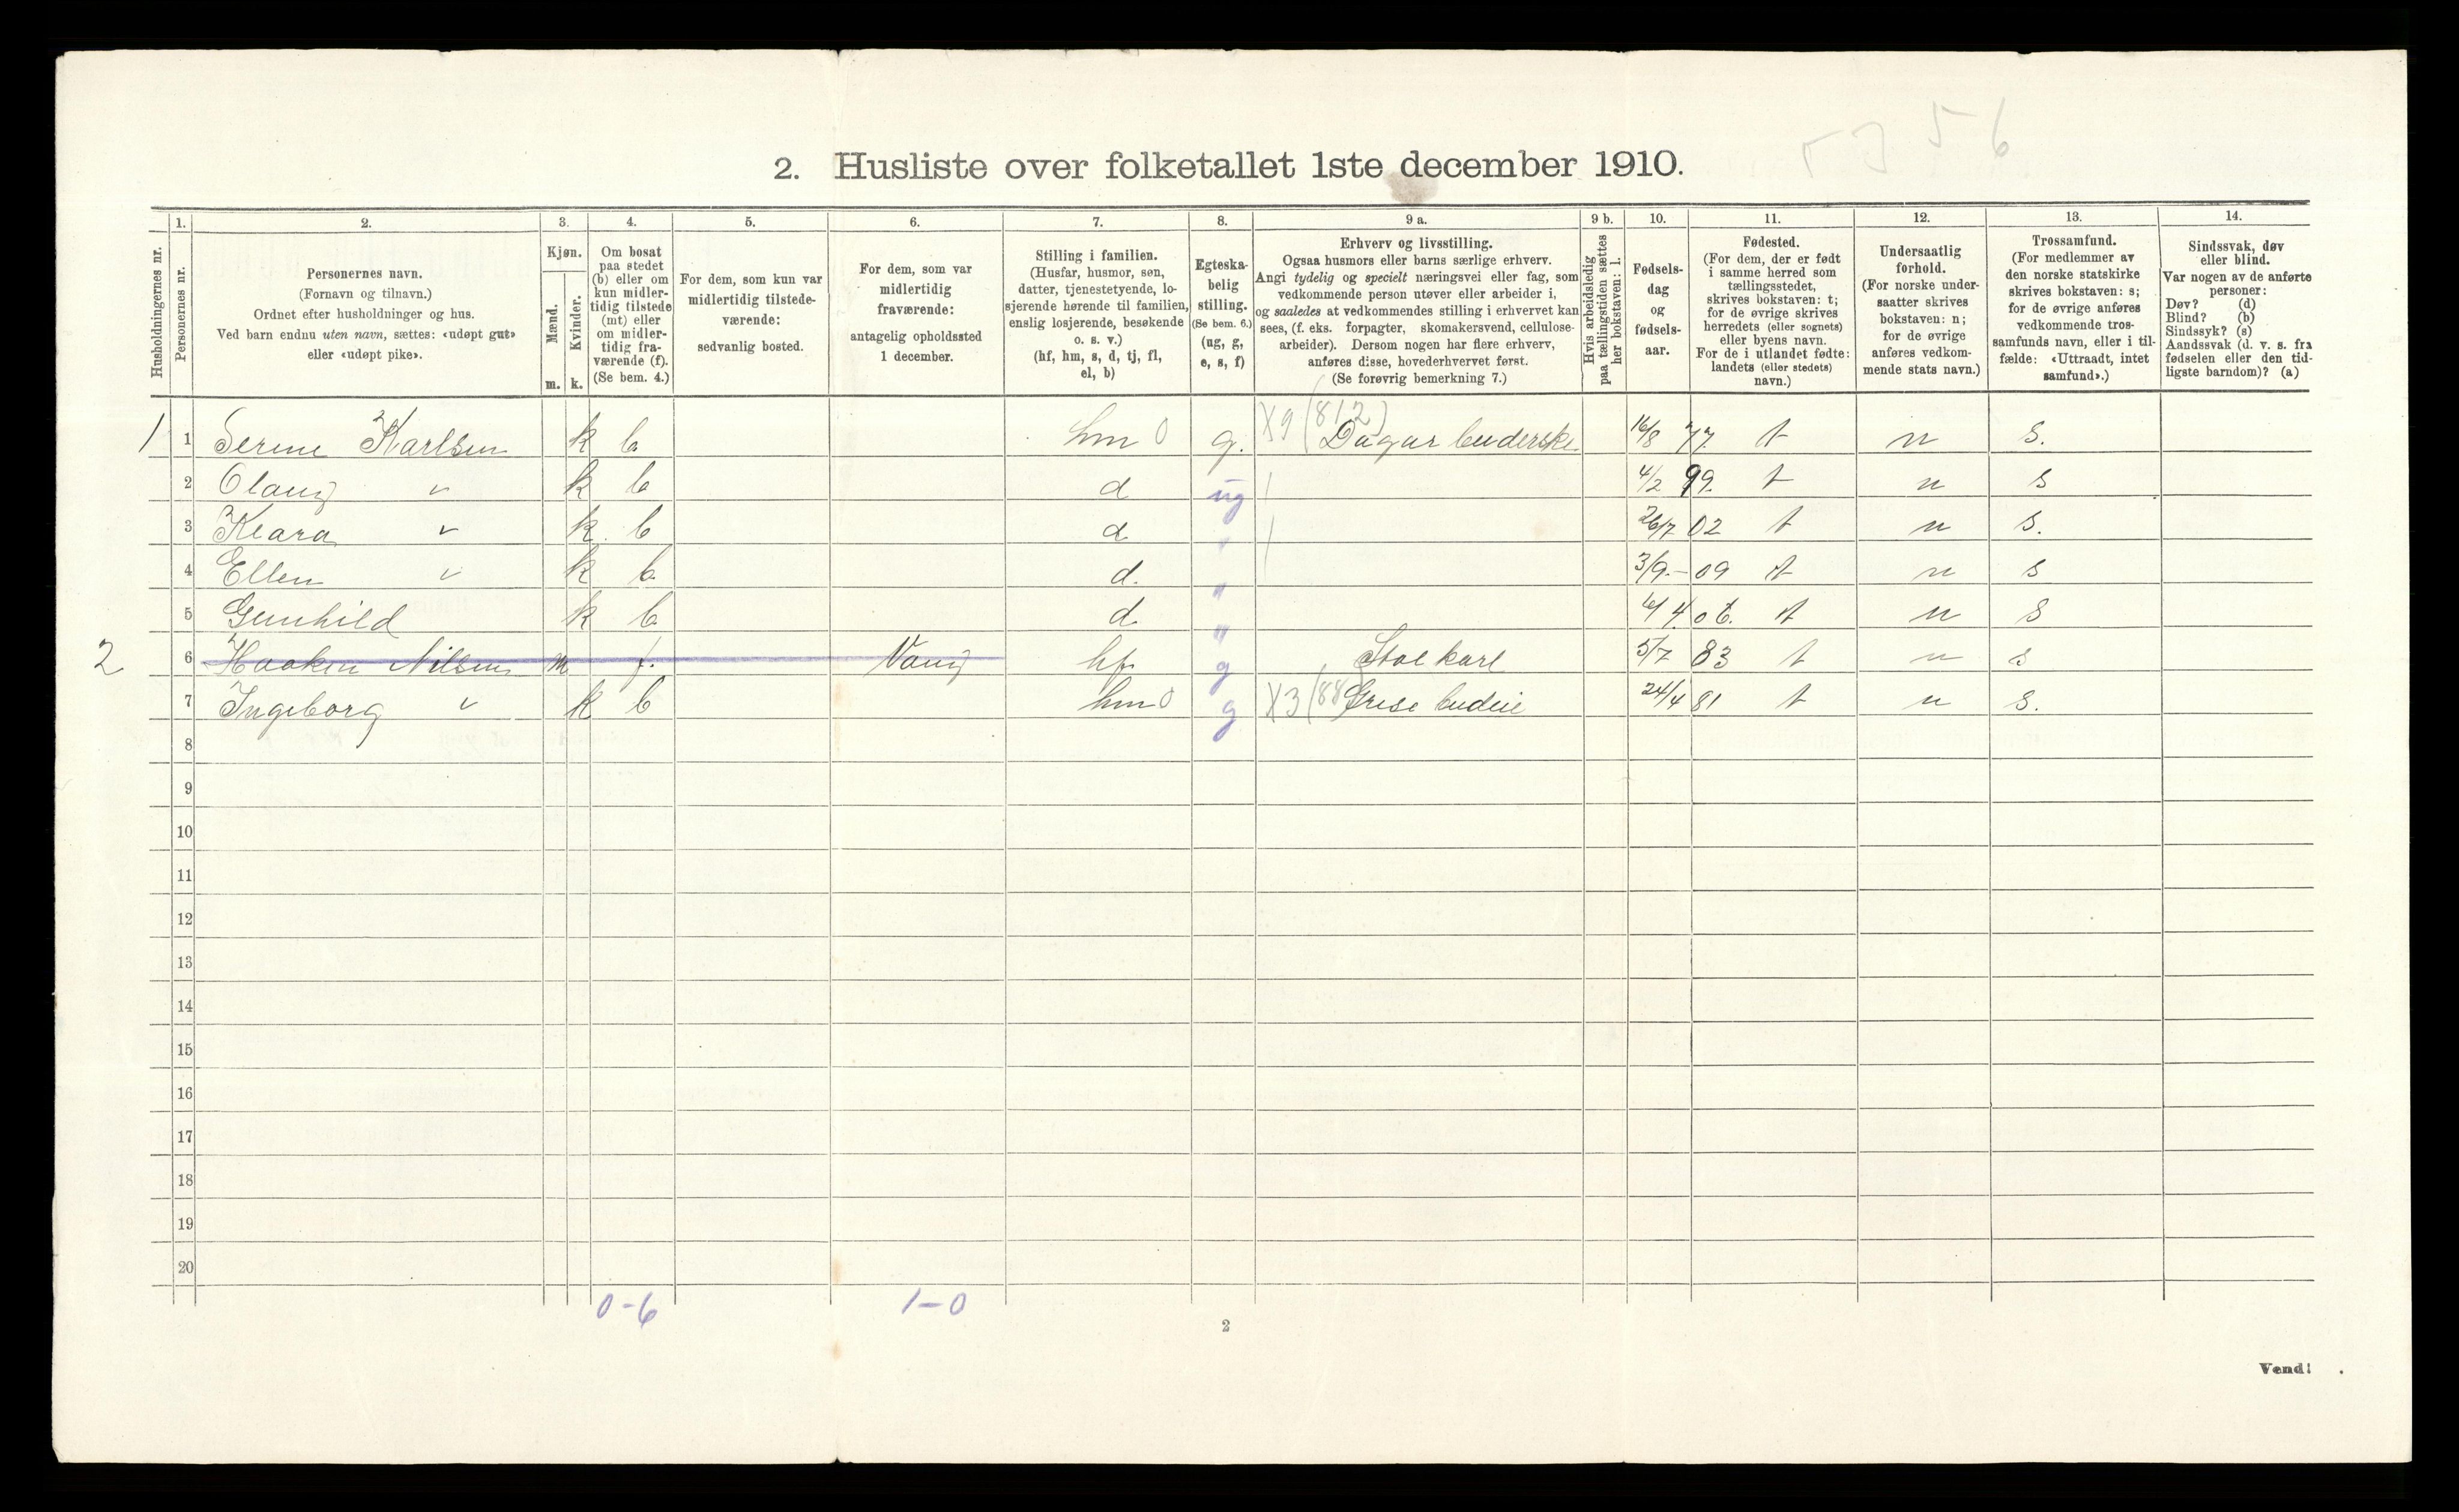 5356
2. Husliste over folketallet 1ste december 1910.
1. 2. 3. 4. 5. 6. 7. 8. 9 a. 9 b. 10. 11. 12. 13. 14.
Husholdningernes nr.
Personernes nr.
Personernes navn.
(Fornavn og tilnavn.)
Ordnet efter husholdninger og hus.
Ved barn endnu uten navn, sættes: «udøpt gut»
eller «udøpt pike».
Kjøn.
Mænd.
Kvinder.
m. k.
Om bosat
paa stedet
(b) eller om
kun midler-
tidig tilstede
(mt) eller
om midler-
tidig fra-
værende (f).
(Se bem. 4.)
For dem, som kun var
midlertidig tilstede-
værende:
sedvanlig bosted.
For dem, som var
midlertidig
fraværende:
antagelig opholdssted
1 december.
Stilling i familien.
(Husfar, husmor, søn,
datter, tjenestetyende, lo-
sjerende hørende til familien,
enslig losjerende, besøkende
o. s. v.)
(hf, hm, s, d, tj, fl,
el, b)
Egteska-
belig
stilling.
(Se bem. 6.)
(ug, g,
e, s, f)
Erhverv og livsstilling.
Ogsaa husmors eller barns særlige erhverv.
Angi tydelig og specielt næringsvei eller fag, som
vedkommende person utøver eller arbeider i,
og saaledes at vedkommendes stilling i erhvervet kan
sees, (f. eks. forpagter, skomakersvend, cellulose-
arbeider). Dersom nogen har flere erhverv,
anføres disse, hovederhvervet først.
(Se forøvrig bemerkning 7.)
Hvis arbeidsledig
paa tællingstiden sættes
her bokstaven: l.
Fødsels-
dag
og
fødsels-
aar.
Fødested.
(For dem, der er født
i samme herred som
tællingsstedet,
skrives bokstaven: t;
for de øvrige skrives
herredets (eller sognets)
eller byens navn.
For de i utlandet fødte:
landets (eller stedets)
navn.)
Undersaatlig
forhold.
(For norske under-
saatter skrives
bokstaven: n;
for de øvrige
anføres vedkom-
mende stats navn.)
Trossamfund.
(For medlemmer av
den norske statskirke
skrives bokstaven: s;
for de øvrige anføres
vedkommende tros-
samfunds navn, eller i til-
fælde: «Uttraadt, intet
samfund».)
Sindssvak, døv
eller blind.
Var nogen av de anførte
personer:
Døv? (d)
Blind? (b)
Sindssyk? (s)
Aandssvak (d. v. s. fra
fødselen eller den tid-
ligste barndom)? (a)
1 1 Serine Karlsen k b hm 0 g. X9 (812) 16/8 77 t n s.
2 Olaug " k b d ug 4/2 99. t n s
3 Klara " k b d " 26/7 02 t n s.
4 Ellen " k b d. " 3/9 - 09 t n s
5 Gunhild k b d " 6/4. 06. t n s
2 6 Haaken Nilsen m f. Vang hf. g Stalkarl 5/7 83 t n s
7 Ingeborg " k b hm 0 g X3 (88) Grise budeie 24/4 81 t n s.
8
9
10
11
12
13
14
15
16
17
18
19
20
0-6 1-0
2
Vend!